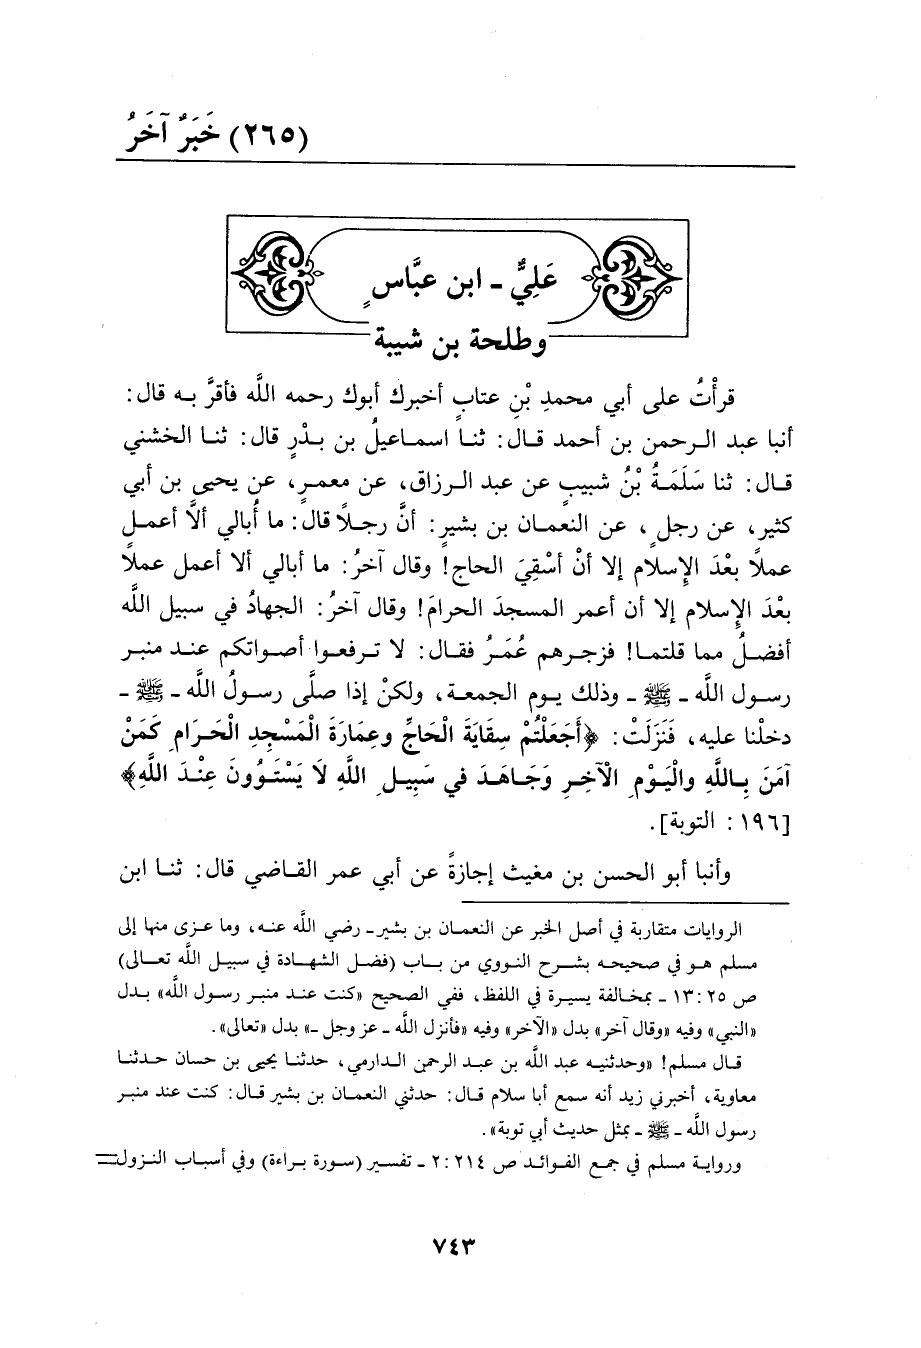 (٢٦٥) خَبَرٌ آخَرُ
عَلِيٌّ - ابن عبَّاسٍ
وطلحة بن شيبة
قرأْتُ على أبي محمدِ بْنِ عتابٍ أخبرك أبوك رحمه اللَّه فأقرَّ به قال:
أنبا عبد الرحمن بن أحمد قال: ثنا اسماعيلُ بن بدْرٍ قال: ثنا الخشني
قال: ثنا سَلَمَةُ بْنُ شبيبٍ عن عبد الرزاق، عن معمرٍ، عن يحيى بن أبي
كثير، عن رجلٍ، عن النعمان بن بشيرٍ: أنَّ رجلاً قال: ما أُبالي ألاَّ أعمل
عملاً بعْدَ الإِسلام إلا أنْ أسْقِيَ الحاج! وقال آخرُ: ما أبالي ألا أعمل عملاً
بعْدَ الإِسلام إلا أن أعمر المسجدَ الحرامَ! وقال آخرُ: الجهادُ في سبيل اللَّه
أفضلُ مما قلتما! فزجرهم عُمَرُ فقال: لا ترفعوا أصواتكم عند منبر
رسول اللَّه - ﷺ - وذلك يوم الجمعة، ولكنْ إذا صلَّى رسولُ اللَّه - ﷺ -
دخلْنا عليه، فَنَزَلَتْ: ﴿أَجَعَلْتُمْ سِقَايَةَ الْحَاجِّ وعِمَارَةَ الْمَسْجِدِ الْحَرَامِ كَمَنْ
آمَنَ بِاللَّهِ والْيَوْمِ الْآخِرِ وَجَاهَدَ في سَبِيلِ اللَّهِ لَا يَسْتَوُونَ عِنْدَ اللَّهِ﴾
[١٩٦ : التوبة].
وأنبا أبو الحسن بن مغيث إجازةً عن أبي عمر القاضي قال: ثنا ابن
الروايات متقاربة في أصل الخبر عن النعمان بن بشير- رضي اللَّه عنه، وما عزى منها إلى
مسلم هو في صحيحه بشرح النووي من باب (فضل الشهادة في سبيل اللَّه تعالى)
ص ١٣:٢٥ - بمخالفة يسيرة في اللفظ، ففي الصحيح «كنت عند منبر رسول اللَّه» بدل
«النبي» وفيه «وقال آخر» بدل «الآخر» وفيه «فأنزل اللَّه - عز وجل -» بدل «تعالى».
قال مسلم! «وحدثنيه عبد اللَّه بن عبد الرحمن الدارمي، حدثنا يحيى بن حسان حدثنا
معاوية، أخبرني زيد أنه سمع أبا سلام قال: حدثني النعمان بن بشير قال: كنت عند منبر
رسول اللَّه - ﷺ - بمثل حديث أبي توبة».
ورواية مسلم في جمع الفوائد ص ٢:٢١٤ - تفسير (سورة براءة) وفي أسباب النزول=
٧٤٣